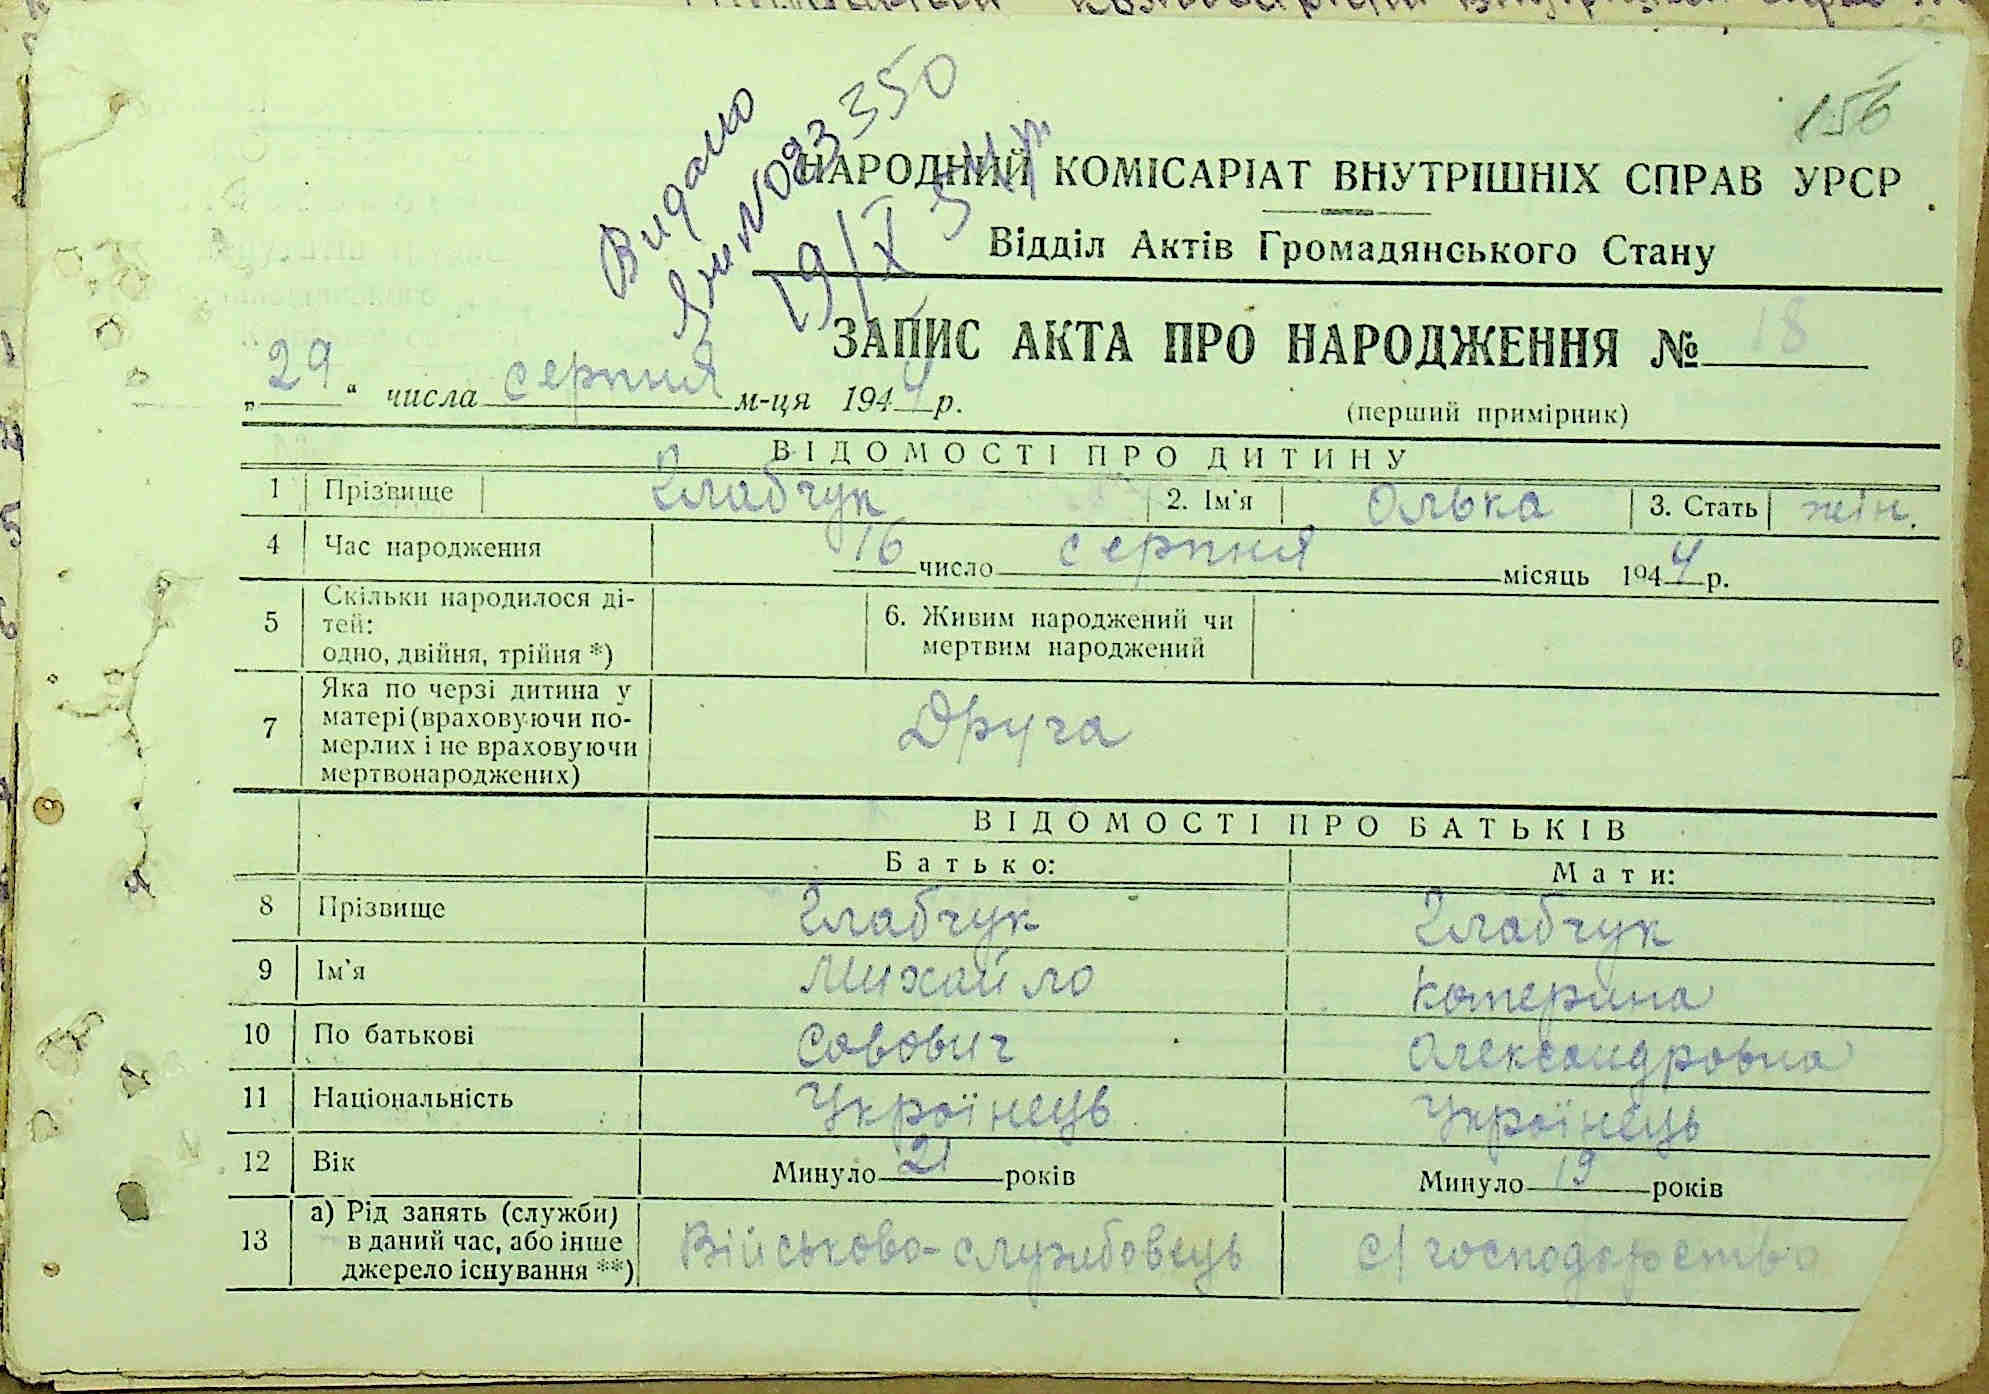 156
Видано
350
19/X 54 р.
НАРОДНИЙ КОМІСАРІАТ ВНУТРІШНІХ СПРАВ УРСР
Відділ Актів Громадянського Стану
ЗАПИС АКТА ПРО НАРОДЖЕННЯ № 18
„29“ числа серпня м-ця 1944 р.
(перший примірник)
ВІДОМОСТІ ПРО ДИТИНУ
1 Прізвище Глабчук 2. Ім'я Олька 3. Стать жін.
4 Час народження 16 число серпня місяць 1944 р.
5 Скільки народилося ді-
тей:
одно, двійня, трійня *)
6. Живим народжений чи
мертвим народжений
7 Яка по черзі дитина у
матері (враховуючи по-
мерлих і не враховуючи
мертвонароджених)
Друга
ВІДОМОСТІ ПРО БАТЬКІВ
Батько: Мати:
8 Прізвище Глабчук Глабчук
9 Ім'я Михайло Катерина
10 По батькові Савович Олександровна
11 Національність Українець Українець
12 Вік Минуло 21 років Минуло 19 років
13 а) Рід занять (служби)
в даний час, або інше
джерело існування **)
Військово-службовець с/господарство